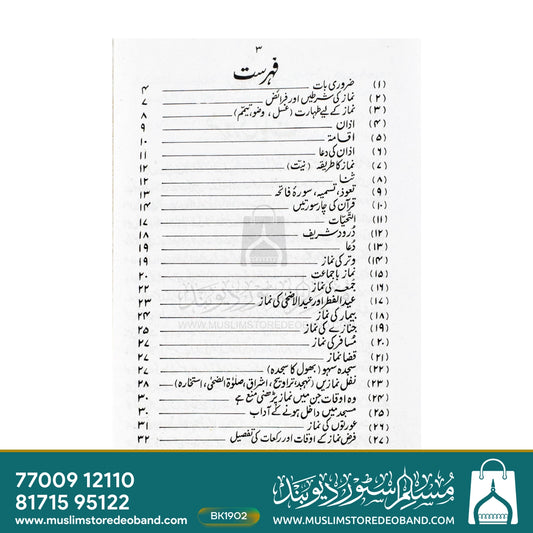 ۳
فہرست
(۱) ضروری بات ۴
(۲) نماز کی شرطیں اور فرائض ۷
(۳) نماز کے لیے طہارت (غسل، وضو، تیمّم) ۸
(۴) اذان ۹
(۵) اقامۃ ۱۰
(۶) اذان کی دعا ۱۱
(۷) نماز کا طریقہ (نیّت) ۱۲
(۸) ثنا ۱۲
(۹) تعوّذ، تسمیہ، سورۂ فاتحہ ۱۳
(۱۰) قرآن کی چار سورتیں ۱۴
(۱۱) التّحیّات ۱۷
(۱۲) دُرود شریف ۱۸
(۱۳) دُعا ۱۹
(۱۴) وتر کی نماز ۱۹
(۱۵) نماز باجماعت ۲۰
(۱۶) جمعہ کی نماز ۲۲
(۱۷) عید الفطر اور عید الاضحیٰ کی نماز ۲۳
(۱۸) بیمار کی نماز ۲۴
(۱۹) جنازے کی نماز ۲۵
(۲۰) مسافر کی نماز ۲۷
(۲۱) قضا نماز ۲۷
(۲۲) سجدہ سہو (بھول کا سجدہ) ۲۷
(۲۳) نفل نمازیں (تہجد، تراویح، اشراق، صلوٰۃ الضحیٰ، استخارہ) ۲۸
(۲۴) وہ اوقات جن میں نماز پڑھنی منع ہے ۳۰
(۲۵) مسجد میں داخل ہونے کے آداب ۳۰
(۲۶) عورتوں کی نماز ۳۱
(۲۷) فرض نماز کے اوقات اور رکعات کی تفصیل ۳۲
مسلم اسٹور دیوبند
WWW.MUSLIMSTOREDEOBAND.COM
77009 12110
81715 95122
www.muslimstoredeoband.com
BK1902
مسلم اسٹور دیوبند
WWW.MUSLIMSTOREDEOBAND.COM